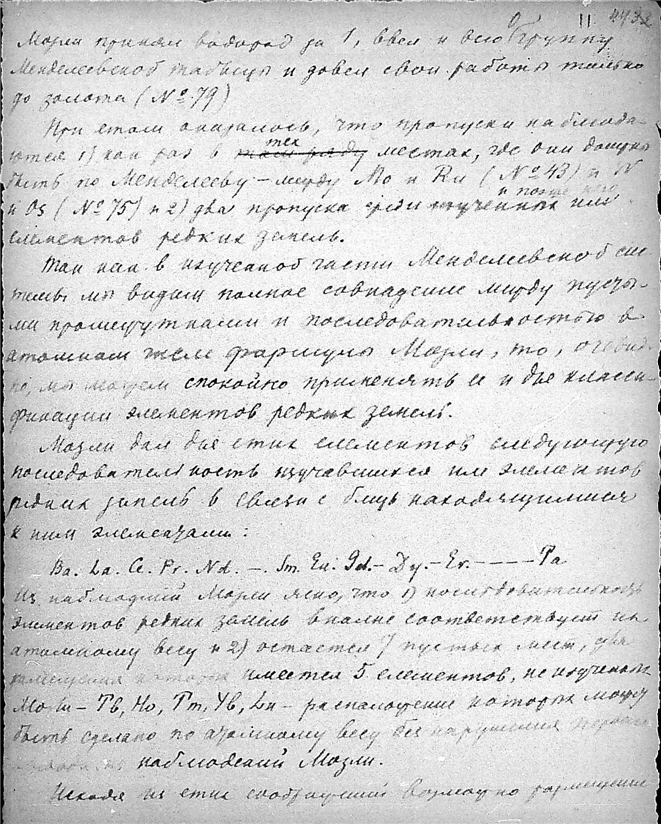 11 4432
Мозли принял водород за 1, ввел и всю 0 группу
Менделеевской таблицы и довел свои работы только
до золота (№ 79)
При етом оказалось, что пропуски наблюда-
ются 1) как раз в тех местах, где они должны
быть по Менделееву – между Mo и Ru (№ 43) и W
и Os (№ 75) и 2) два пропуска среди изученных им и позже него
елементов редких земель.
Так как в изученной части Менделеевской сис-
темы мы видим полное совпадение между пусты-
ми промежутками и последовательностью в
атомном числе формулы Мозли, то, очевид-
но, мы можем спокойно применять ее и для класси-
фикации элементов редких земель.
Мозли дал для етих елементов следующую
последовательность изучавшихся им элементов
редких земель в связи с близ находящимися
к ним элементами:
Ba. La. Ce. Pr. Nd. –. Sm. Eu. Gd. – Dy. – Er. – – – – Ta
Из наблюдений Мозли ясно, что 1) последовательность
элементов редких земель вполне соответствует их
атомному весу и 2) остается 7 пустых мест, для
размещения которых имеется 5 елементов, не изученных
Мозли – Tb, Ho, Tm, Yb, Lu – расположение которых может
быть сделано по атомному весу без нарушения
наблюдений Мозли.
Исходя из етих соображений возможно размещение